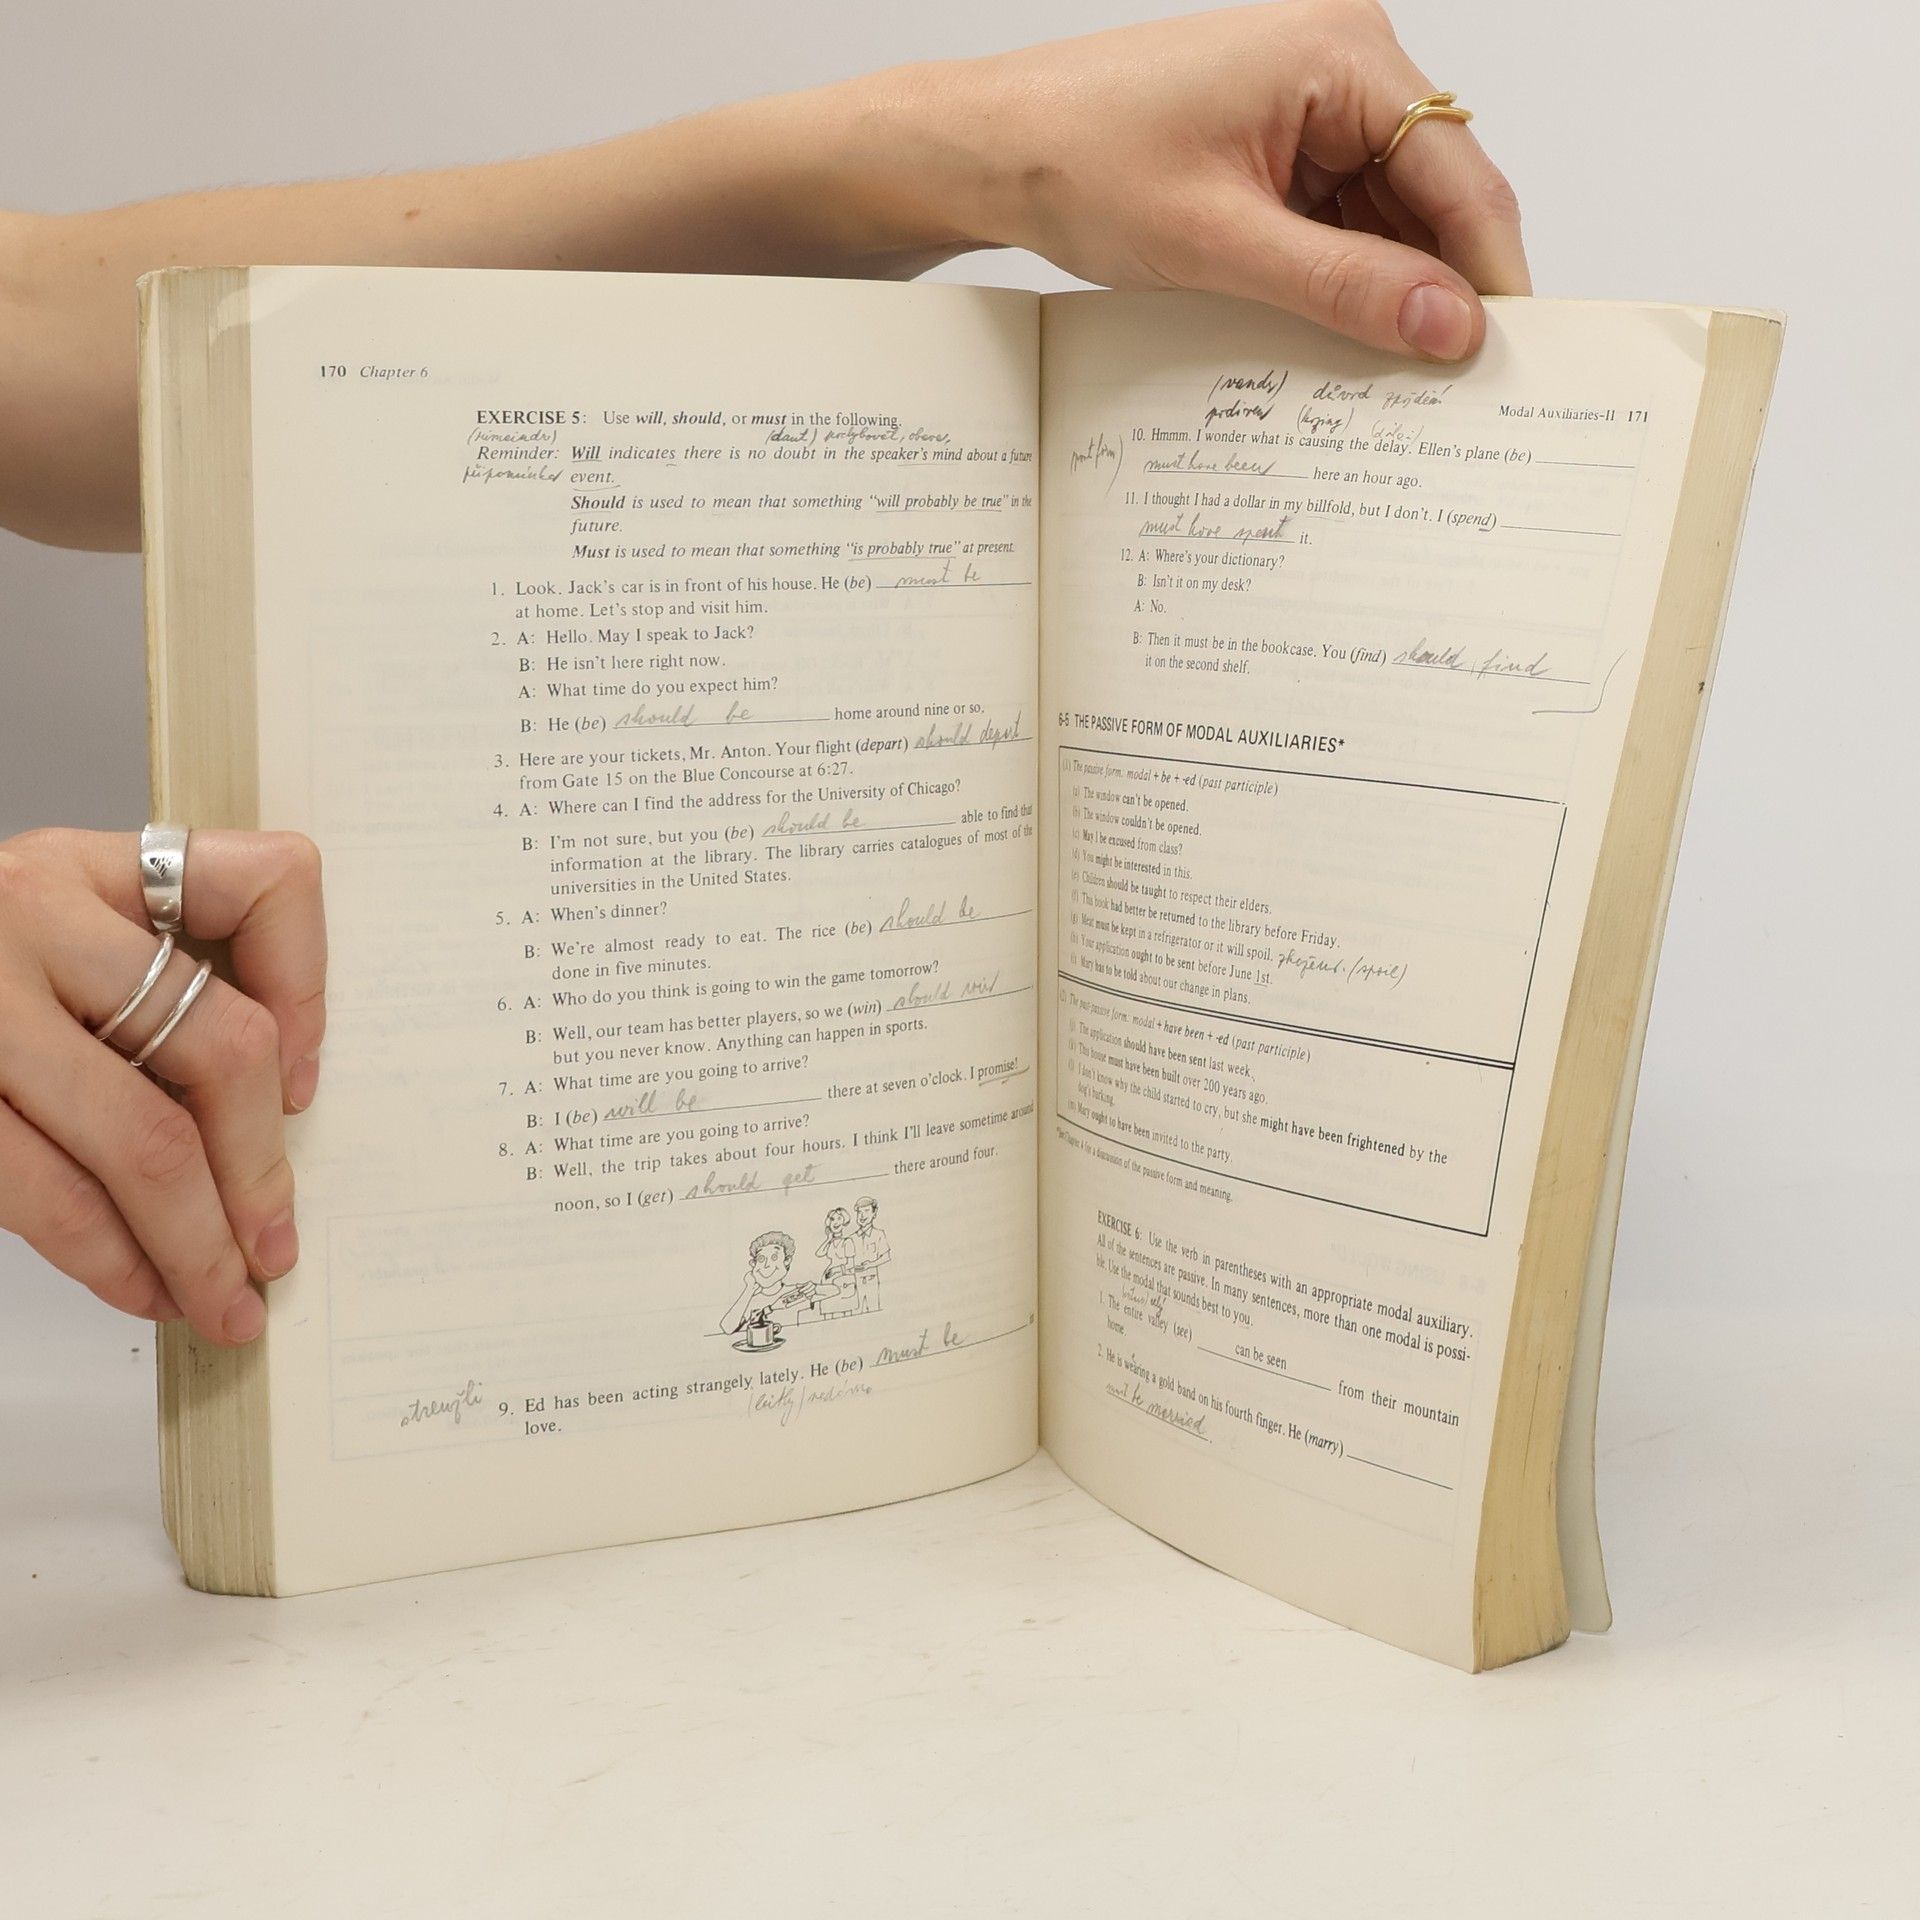 170 Chapter 6
EXERCISE 5: Use will, should, or must in the following.
(rimeindr) (daut) pochybovat, obava,
Reminder: Will indicates there is no doubt in the speaker's mind about a future
připomínka event.
Should is used to mean that something "will probably be true" in the
future.
Must is used to mean that something "is probably true" at present.
1. Look. Jack's car is in front of his house. He (be) must be
at home. Let's stop and visit him.
2. A: Hello. May I speak to Jack?
B: He isn't here right now.
A: What time do you expect him?
B: He (be) should be home around nine or so.
3. Here are your tickets, Mr. Anton. Your flight (depart) should depart
from Gate 15 on the Blue Concourse at 6:27.
4. A: Where can I find the address for the University of Chicago?
B: I'm not sure, but you (be) should be able to find that
information at the library. The library carries catalogues of most of the
universities in the United States.
5. A: When's dinner?
B: We're almost ready to eat. The rice (be) should be
done in five minutes.
6. A: Who do you think is going to win the game tomorrow?
B: Well, our team has better players, so we (win) should win
but you never know. Anything can happen in sports.
7. A: What time are you going to arrive?
B: I (be) will be there at seven o'clock. I promise!
8. A: What time are you going to arrive?
B: Well, the trip takes about four hours. I think I'll leave sometime around
noon, so I (get) should get there around four.
9. Ed has been acting strangely lately. He (be) must be in
strenžli (leitly) nedávno
love.
(vandr) důvod zpoždění
(kozing)
Modal Auxiliaries-II 171
10. Hmmm. I wonder what is causing the delay. Ellen's plane (be)
must have been here an hour ago.
11. I thought I had a dollar in my billfold, but I don't. I (spend)
must have spent it.
12. A: Where's your dictionary?
B: Isn't it on my desk?
A: No.
B: Then it must be in the bookcase. You (find) should find
it on the second shelf.
6-6 THE PASSIVE FORM OF MODAL AUXILIARIES*
(1) The passive form: modal + be + -ed (past participle)
(a) The window can't be opened.
(b) The window couldn't be opened.
(c) May I be excused from class?
(d) You might be interested in this.
(e) Children should be taught to respect their elders.
(f) This book had better be returned to the library before Friday.
(g) Meat must be kept in a refrigerator or it will spoil. zkažení (spoil)
(h) Your application ought to be sent before June 1st.
(i) Mary has to be told about our change in plans.
(2) The past-passive form: modal + have been + -ed (past participle)
(j) The application should have been sent last week.
(k) This house must have been built over 200 years ago.
(l) I don't know why the child started to cry, but she might have been frightened by the
dog's barking.
(m) Mary ought to have been invited to the party.
*See Chapter 4 for a discussion of the passive form and meaning.
EXERCISE 6: Use the verb in parentheses with an appropriate modal auxiliary.
All of the sentences are passive. In many sentences, more than one modal is possi-
ble. Use the modal that sounds best to you.
1. The entire valley (see) can be seen from their mountain
home.
2. He is wearing a gold band on his fourth finger. He (marry)
must be married.